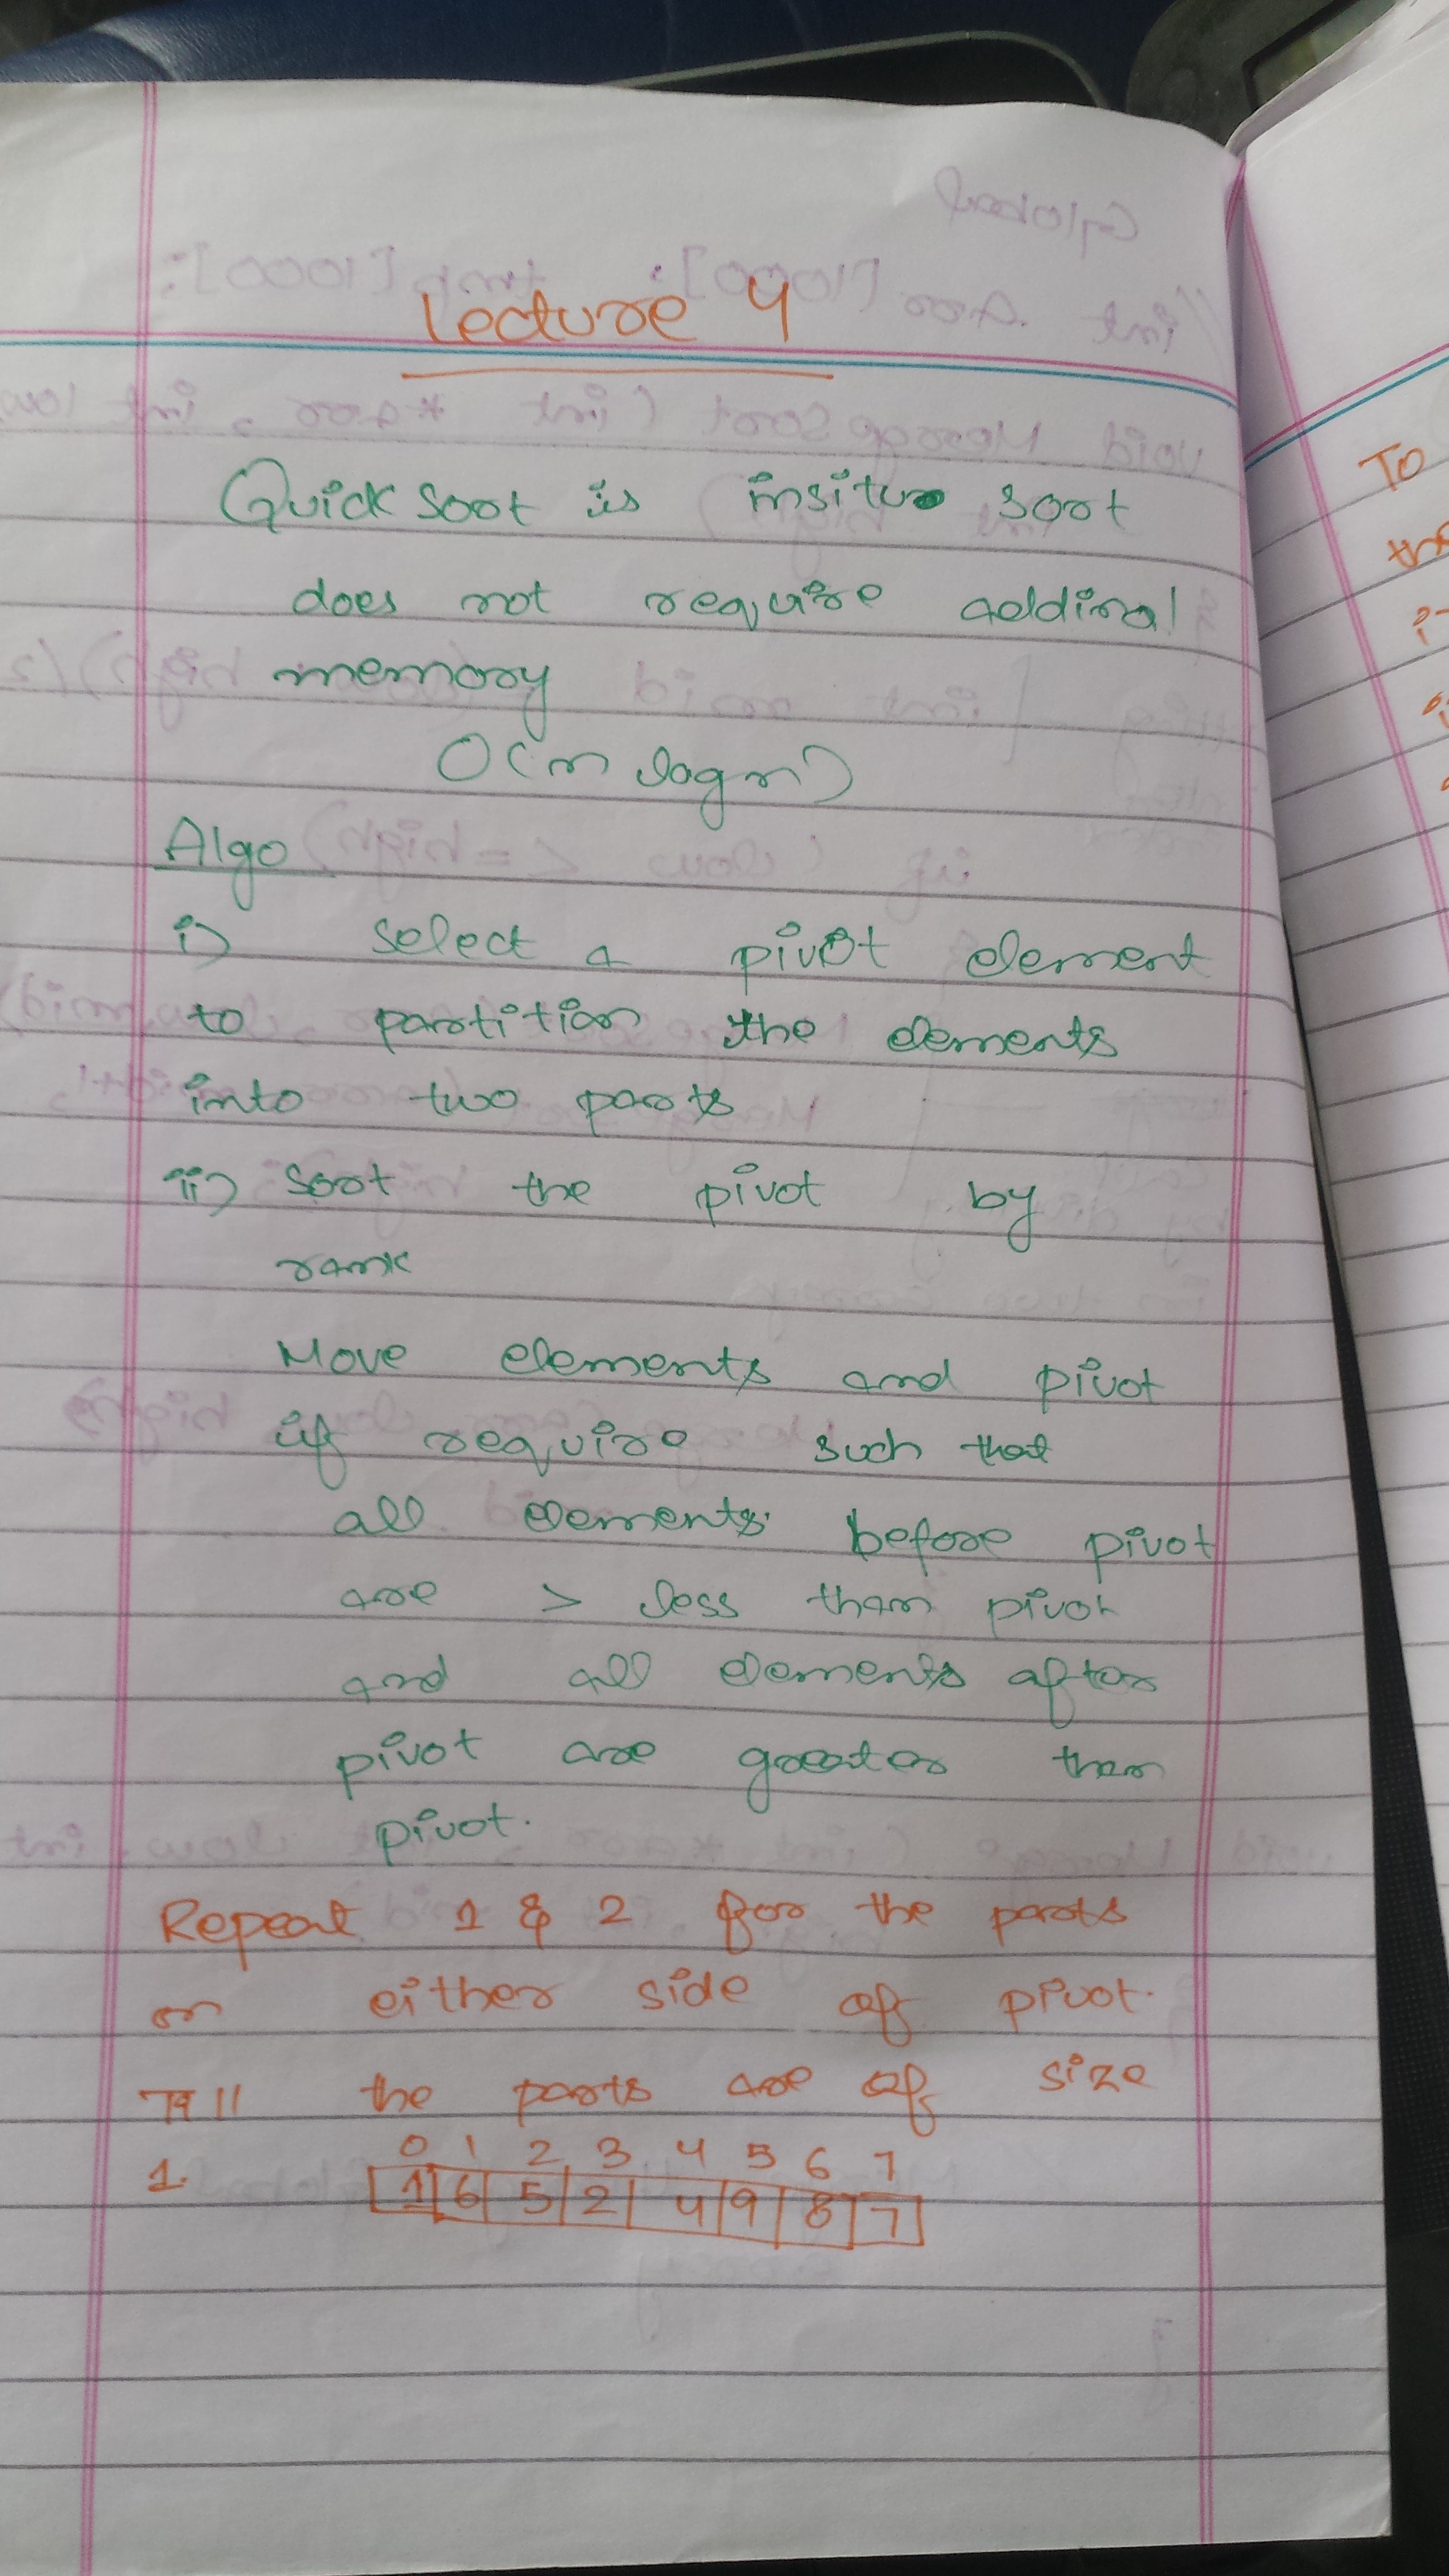 Lecture 4
Quick sort is insitu sort
does not require addinal
memory
O(n logn)
Algo
i) select a pivot element
to partition the elements
into two parts
ii) Sort the pivot by
rank
Move elements and pivot
if require such that
all elements before pivot
are > less than pivot
and all elements after
pivot are greater than
pivot.
Repeat 1 & 2 for the parts
on either side of pivot.
Till the parts are of size
0 1 2 3 4 5 6 7
1. 1 6 5 2 4 9 8 7
To